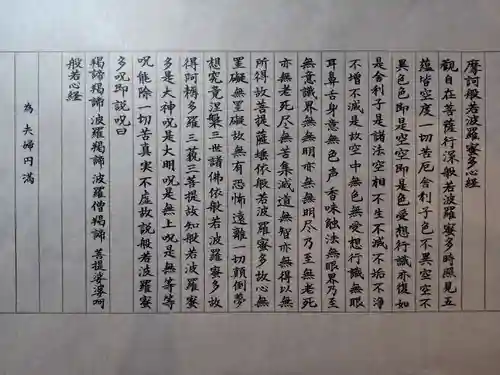 摩訶般若波羅蜜多心経
観自在菩薩行深般若波羅蜜多時照見五
蘊皆空度一切苦厄舎利子色不異空空不
異色色即是空空即是色受想行識亦復如
是舎利子是諸法空相不生不滅不垢不浄
不増不減是故空中無色無受想行識無眼
耳鼻舌身意無色声香味触法無眼界乃至
無意識界無無明亦無無明尽乃至無老死
亦無老死尽無苦集滅道無智亦無得以無
所得故菩提薩埵依般若波羅蜜多故心無
罣礙無罣礙故無有恐怖遠離一切顛倒夢
想究竟涅槃三世諸佛依般若波羅蜜多故
得阿耨多羅三藐三菩提故知般若波羅蜜
多是大神呪是大明呪是無上呪是無等等
呪能除一切苦真実不虚故説般若波羅蜜
多呪即説呪曰
羯諦 羯諦 波羅羯諦 波羅僧羯諦 菩提婆婆呵
般若心経
為 夫婦円満